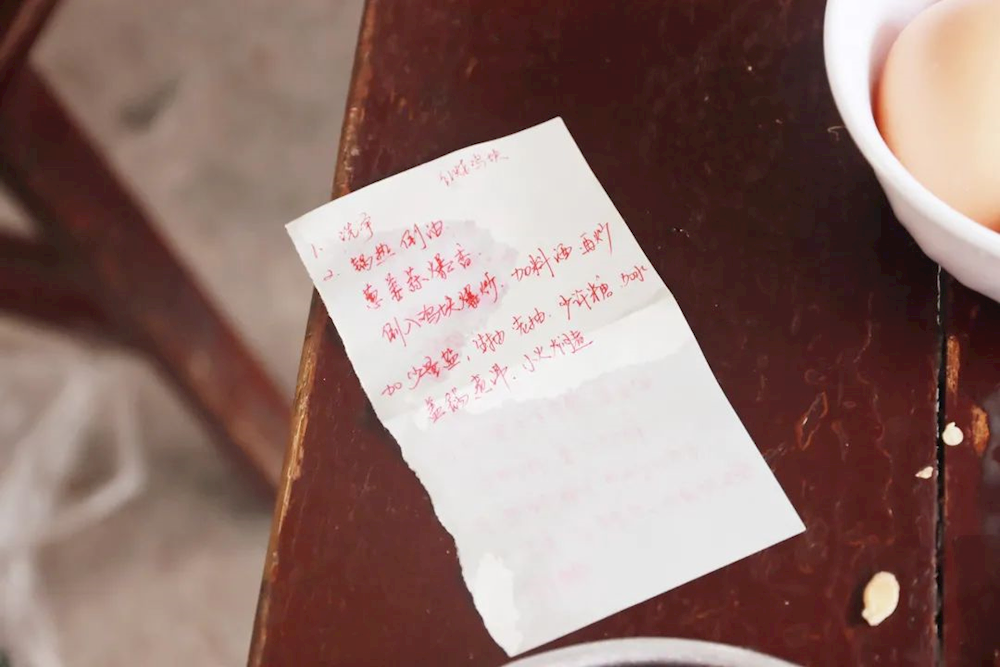 红烧鸡块
1. 洗净
2. 锅热 倒油
葱姜蒜爆香.
倒入鸡块爆炒. 加料酒 再炒
加少量盐, 生抽 老抽. 少许糖. 加水
盖锅 煮开. 小火